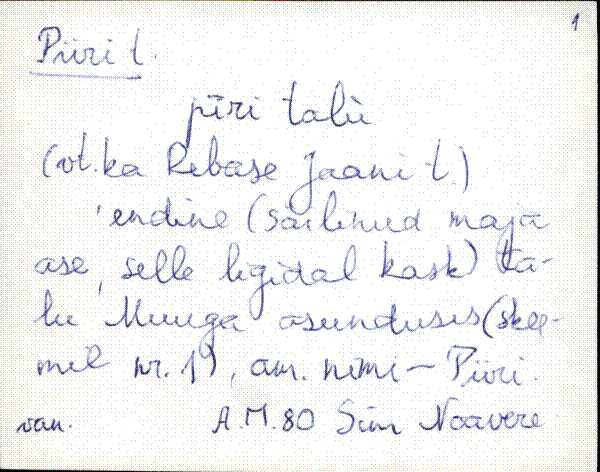 1
Piiri t.
pīri talù
(vt. ka Rebase Jaani t.)
'endine (säilinud maja
ase, selle ligidal kask) ta-
lu Muuga asunduses (skee-
mil nr. 1), am. nimi - Piiri.
van. A.M. 80 Sim Noavere